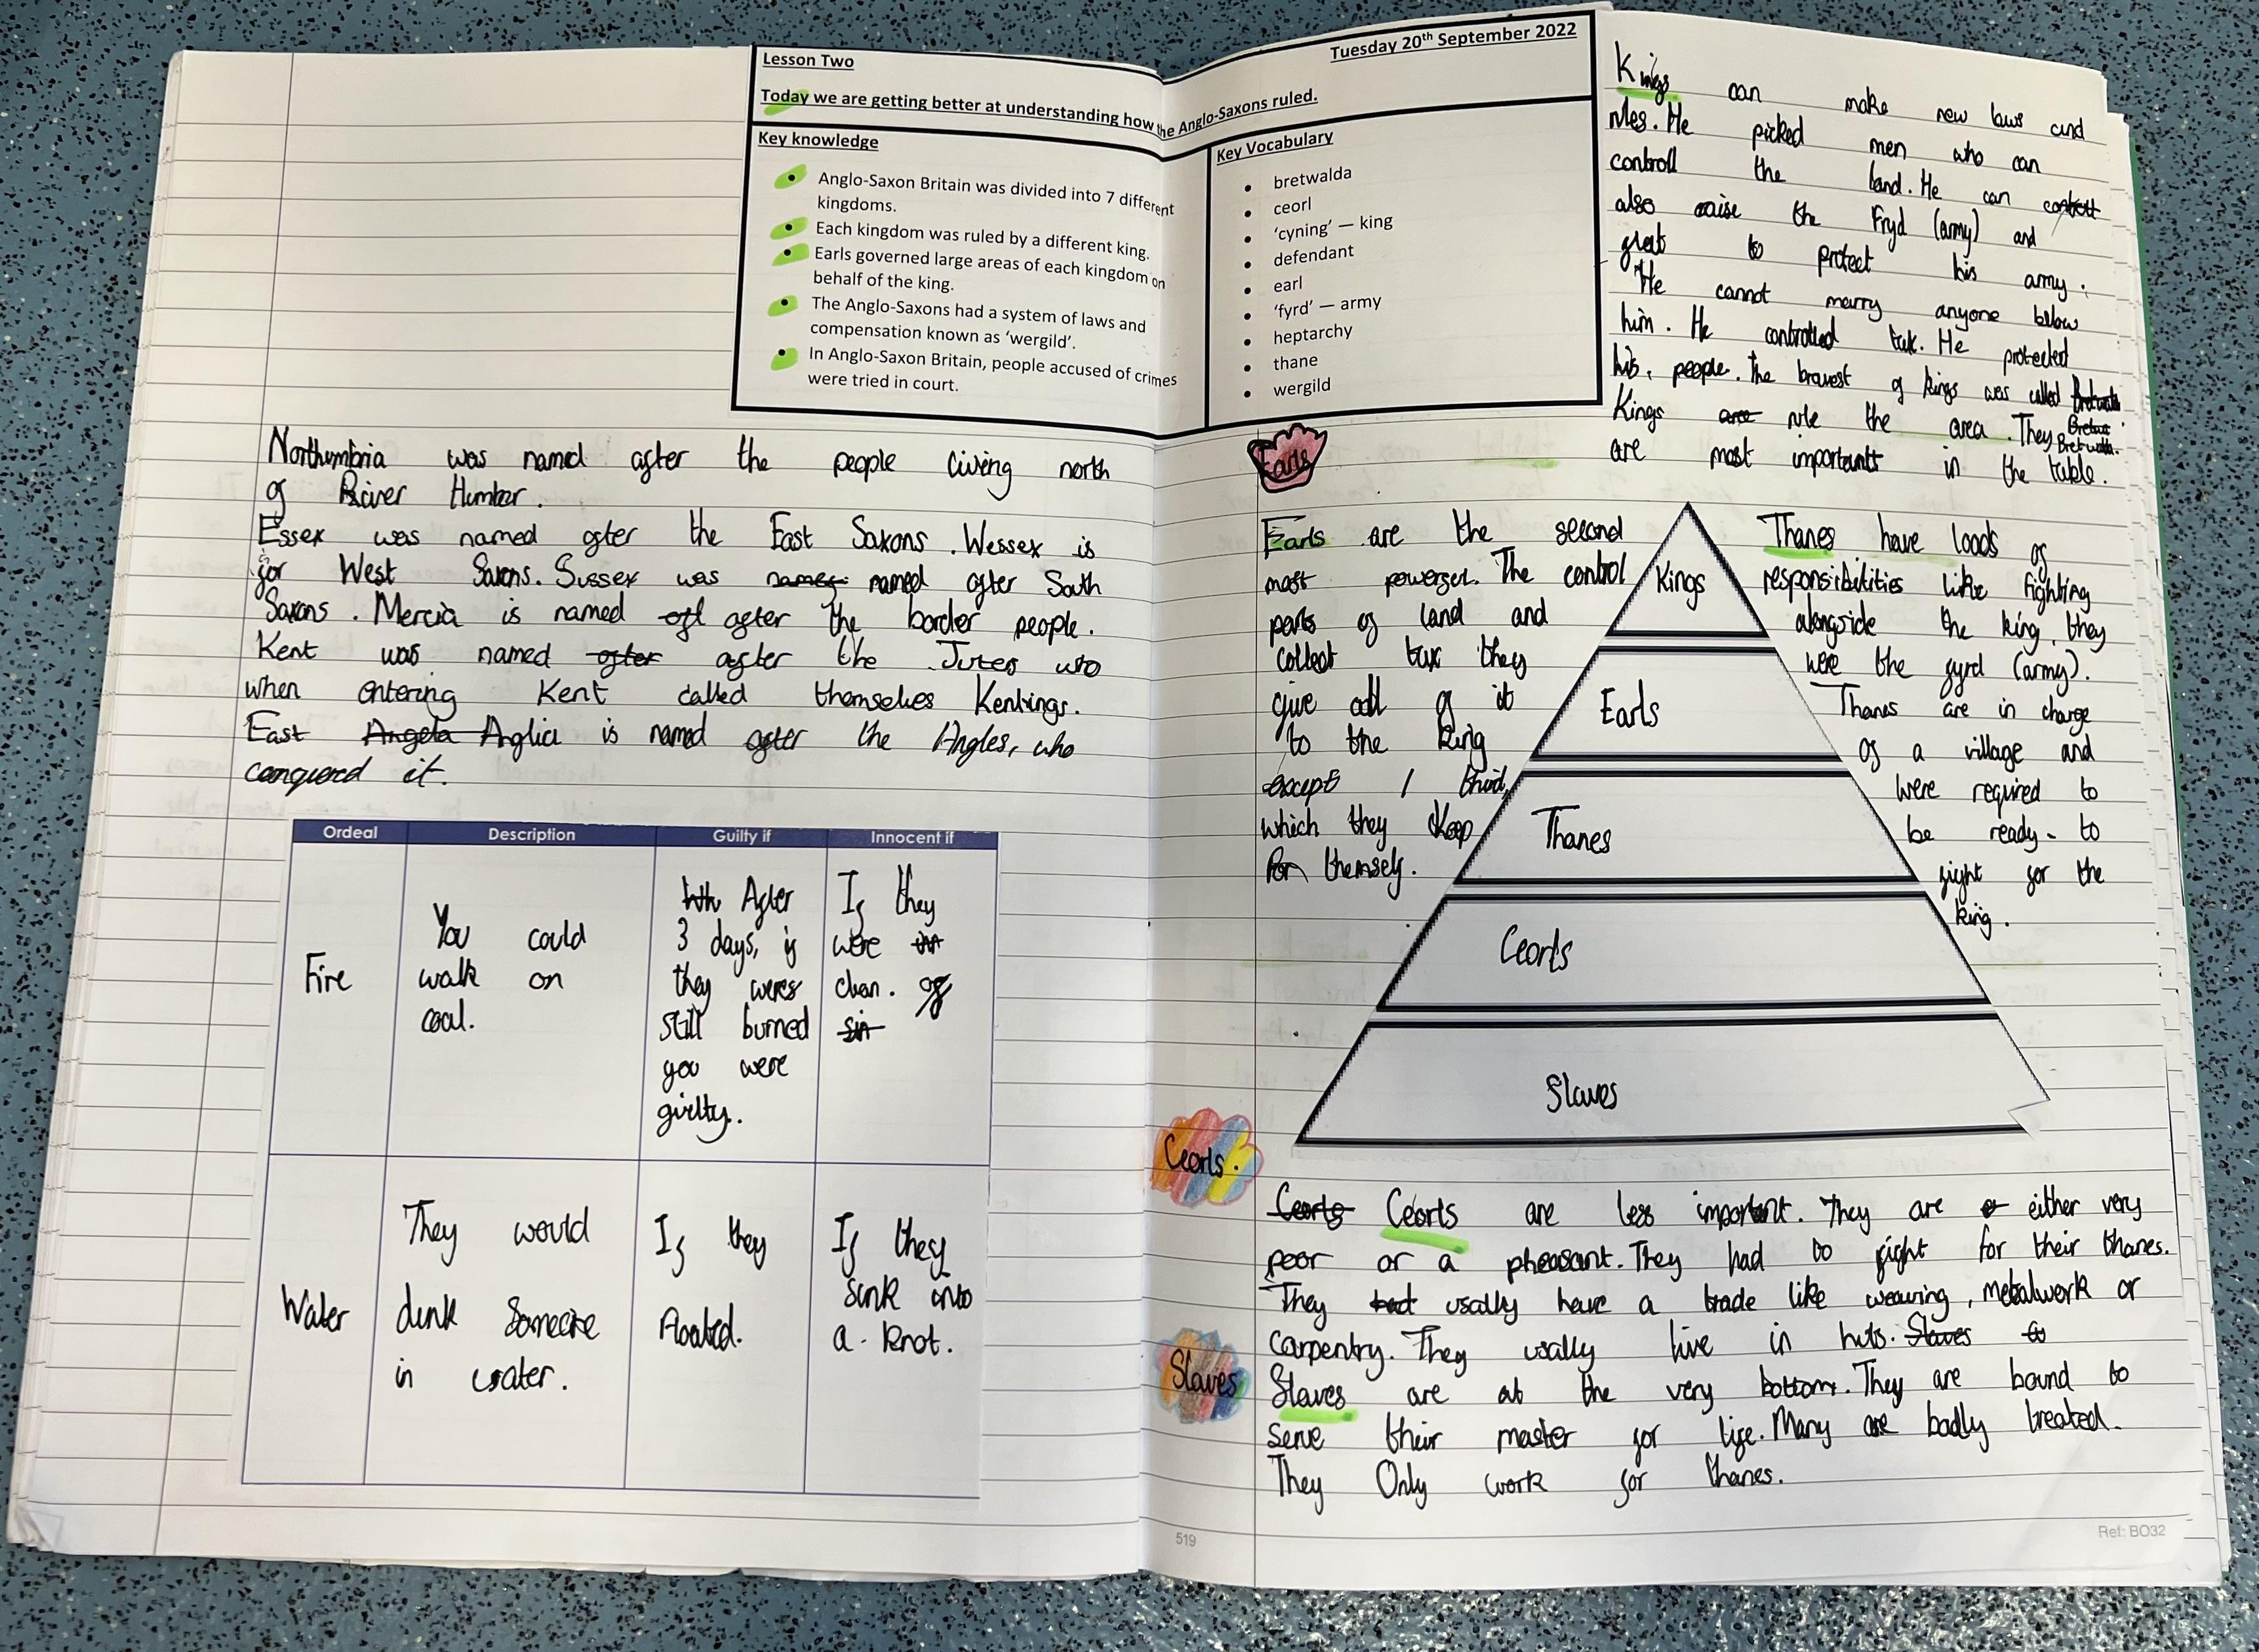 Lesson Two
Tuesday 20th September 2022
Today we are getting better at understanding how the Anglo-Saxons ruled.
Key knowledge
Anglo-Saxon Britain was divided into 7 different
kingdoms.
Each kingdom was ruled by a different king.
Earls governed large areas of each kingdom on
behalf of the king.
The Anglo-Saxons had a system of laws and
compensation known as ‘wergild’.
In Anglo-Saxon Britain, people accused of crimes
were tried in court.
Key Vocabulary
bretwalda
ceorl
‘cyning’ — king
defendant
earl
‘fyrd’ — army
heptarchy
thane
wergild
Northumbria was named after the people living north
of River Humber.
Essex was named after the East Saxons. Wessex is
for West Saxons. Sussex was names named after South
Saxons. Mercia is named aft after the border people.
Kent was named after after the Jutes who
when entering Kent called themselves Kentings.
East Angela Anglia is named after the Angles, who
conquered it.
Ordeal
Description
Guilty if
Innocent if
Fire
You could
walk on
coal.
After
3 days, if
they weres
still burned
you were
guilty.
If they
were
clean. of
sin
Water
They would
dunk someone
in water.
If they
floated.
If they
sink into
a knot.
Kings can make new laws and
rules. He picked men who can
controll the land. He can controll
also raise the Fryd (army) and
to protect his army.
He cannot marry anyone below
him. He controlled tax. He protected
his people. The bravest of kings was called
Kings are rule the area. They
are most important in the table.
Bretwalda.
Earls
Earls are the second
most powerful. The control
parts of land and
collect tax they
give all of it
to the king
except 1 third,
which they keep
for themself.
Kings
Earls
Thanes
Ceorls
Slaves
Thanes have loads of
responsibilities like fighting
alongside the king, they
were the fyrd (army).
Thanes are in charge
of a village and
were required to
be ready to
fight for the
king.
Ceorls.
Ceorls Ceorls are less important. They are either very
poor or a pheasant. They had to fight for their thanes.
They had usally have a trade like weaving, metalwork or
carpentry. They usally live in huts. Slaves to
Slaves
Slaves are at the very bottom. They are bound to
serve their master for life. Many are badly treated.
They Only work for thanes.
519
Ref: BO32